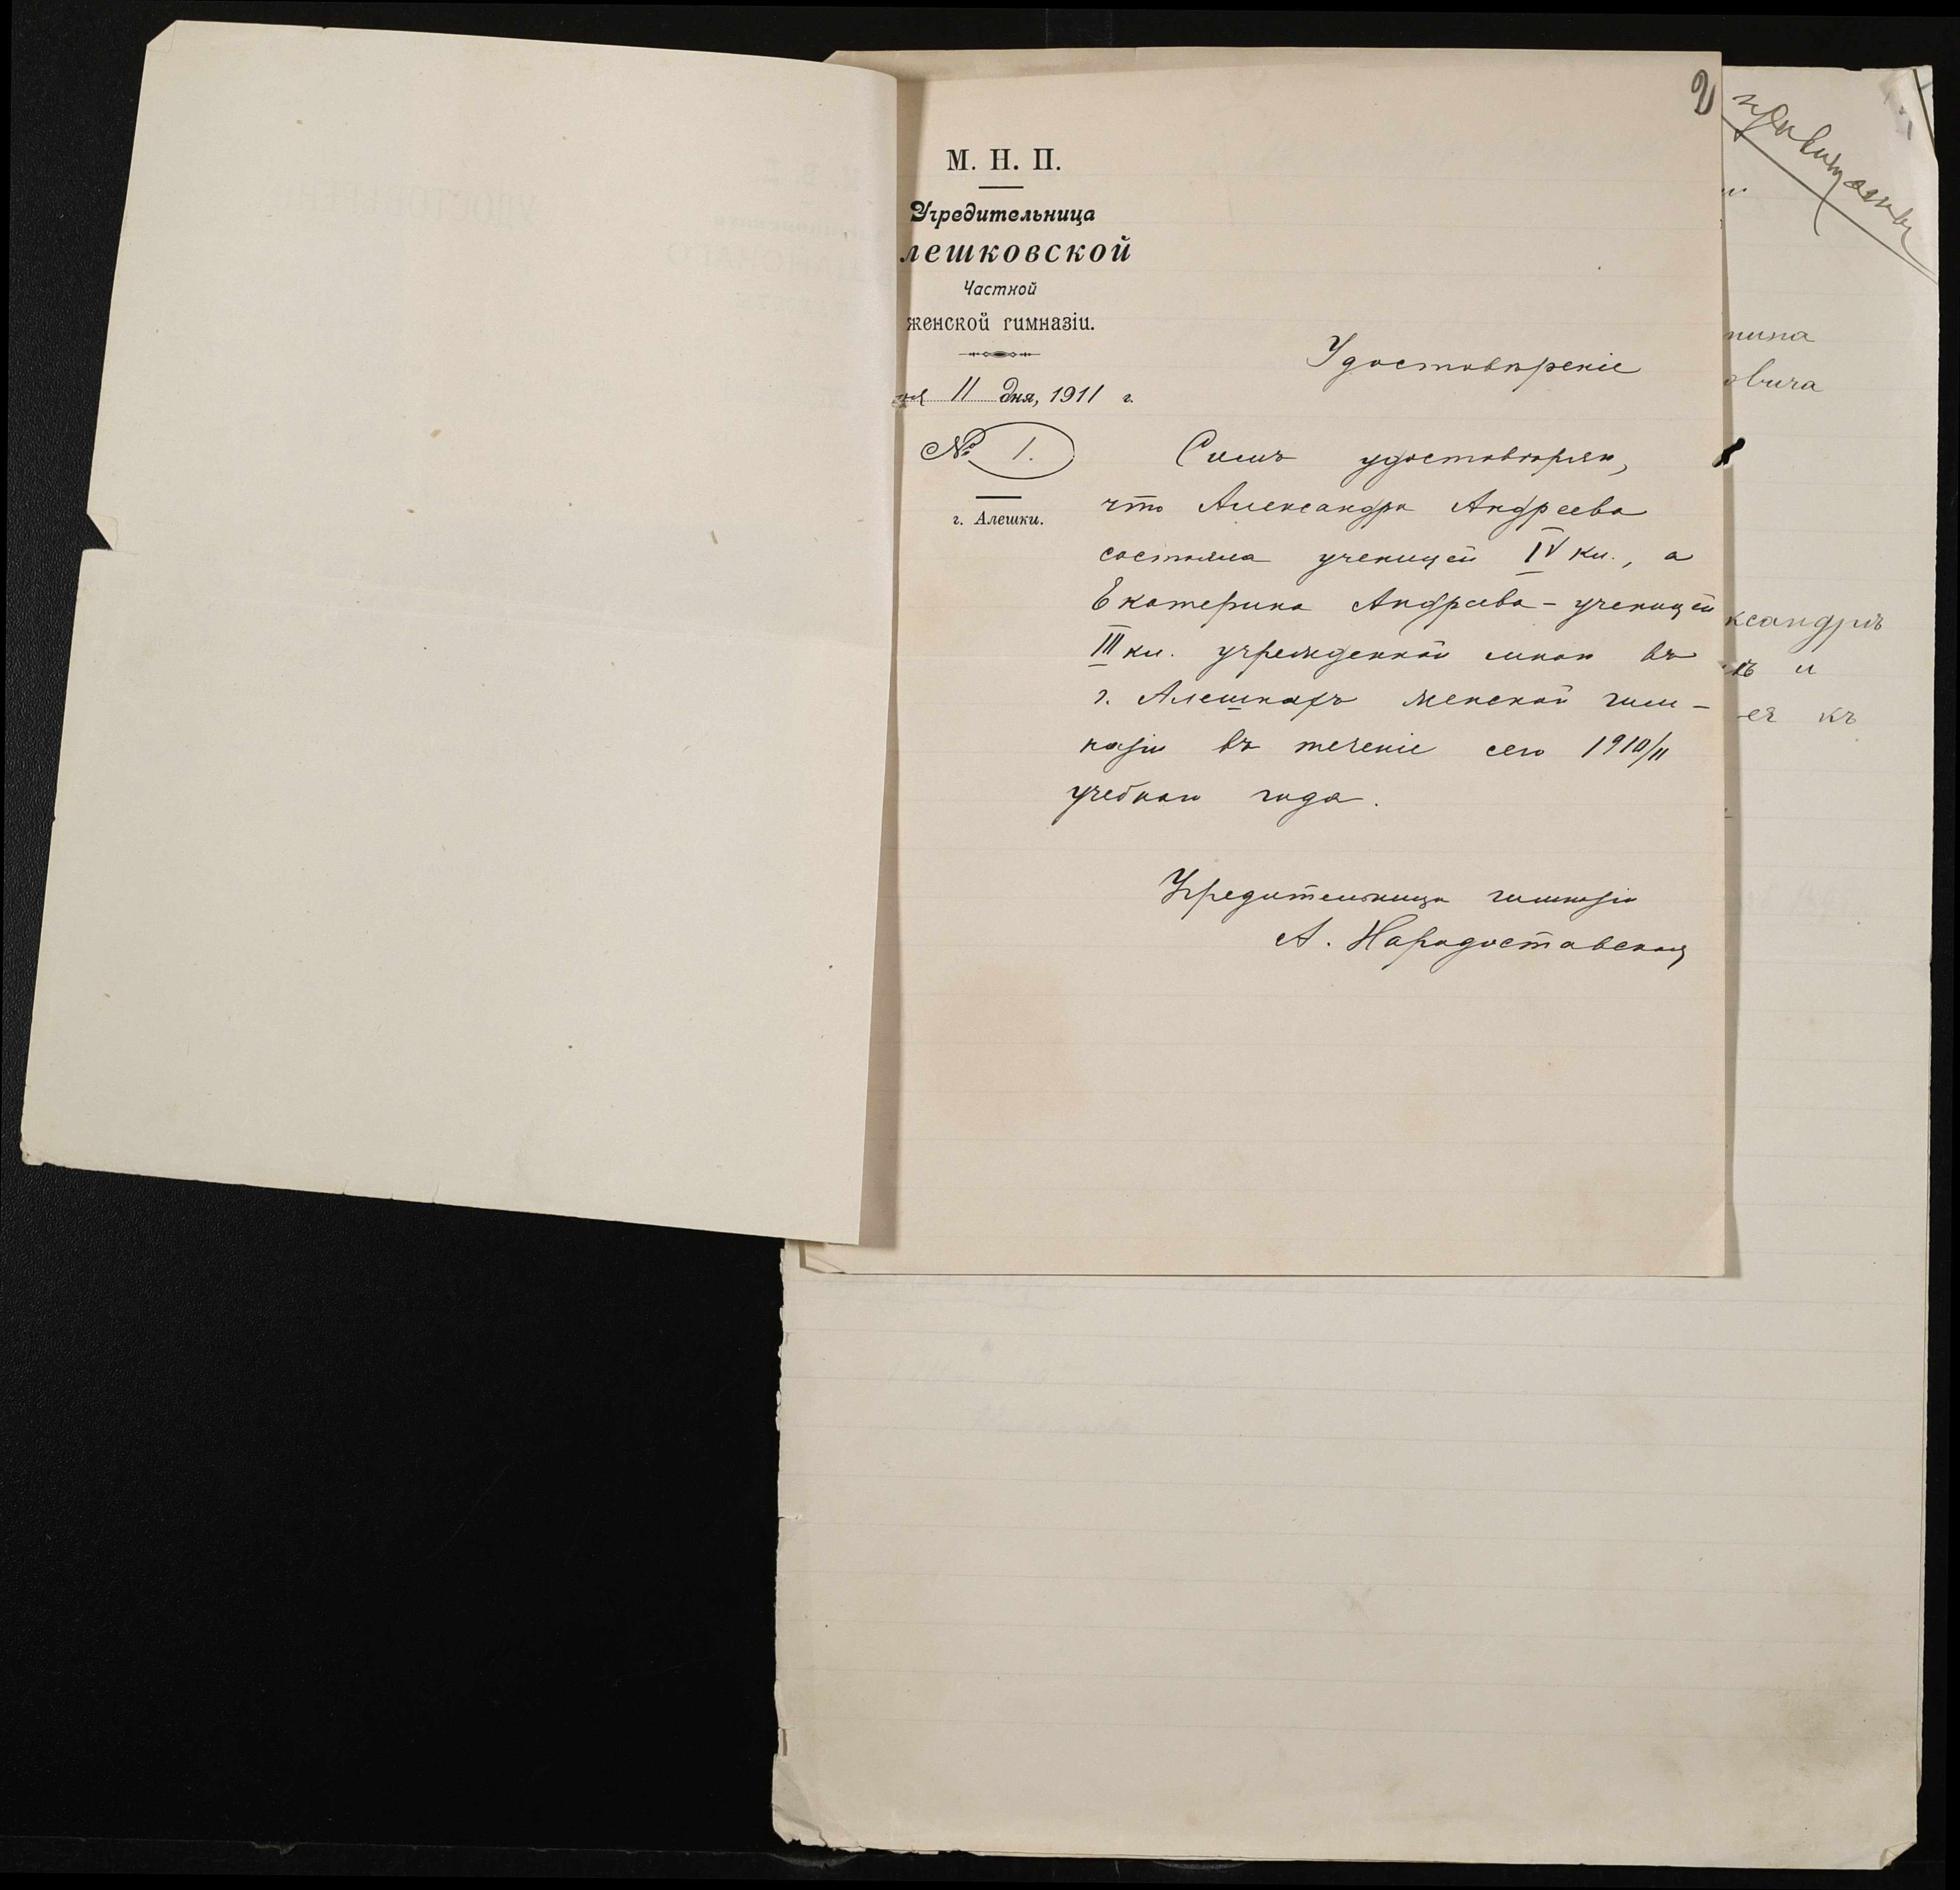 2
М. Н. П.
Учредительница
лешковской
Частной
женской гимназіи.
11 дня, 1911 г.
№ 1.
г. Алешки.
Удостовѣреніе
Симъ удостовѣряю,
что Александра Андреева
состояла ученицей IV кл., а
Екатерина Андреева - ученицей
III кл. учрежденной мною въ
г. Алешкахъ женской гим-
назіи въ теченіе сего 1910/11
учебнаго года.
Учредительница гимназіи
А. Народоставская
нина
овича
ксандрѣ
и
ея къ